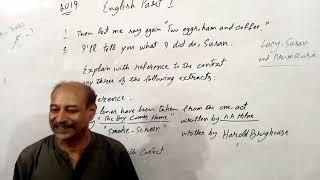 2019 English Part 1
1 Then let me say again "Two eggs, ham and coffee."
I'll tell you what I did do, Susan.
Lucy, Susan
and Primrose
Explain with reference to the context
any three of the following extracts.
Reference:
lines have been taken from the one act
"The Boy Comes Home" written by A.A Milne
"Smoke-Screen" written by Harold Brighouse
with Context